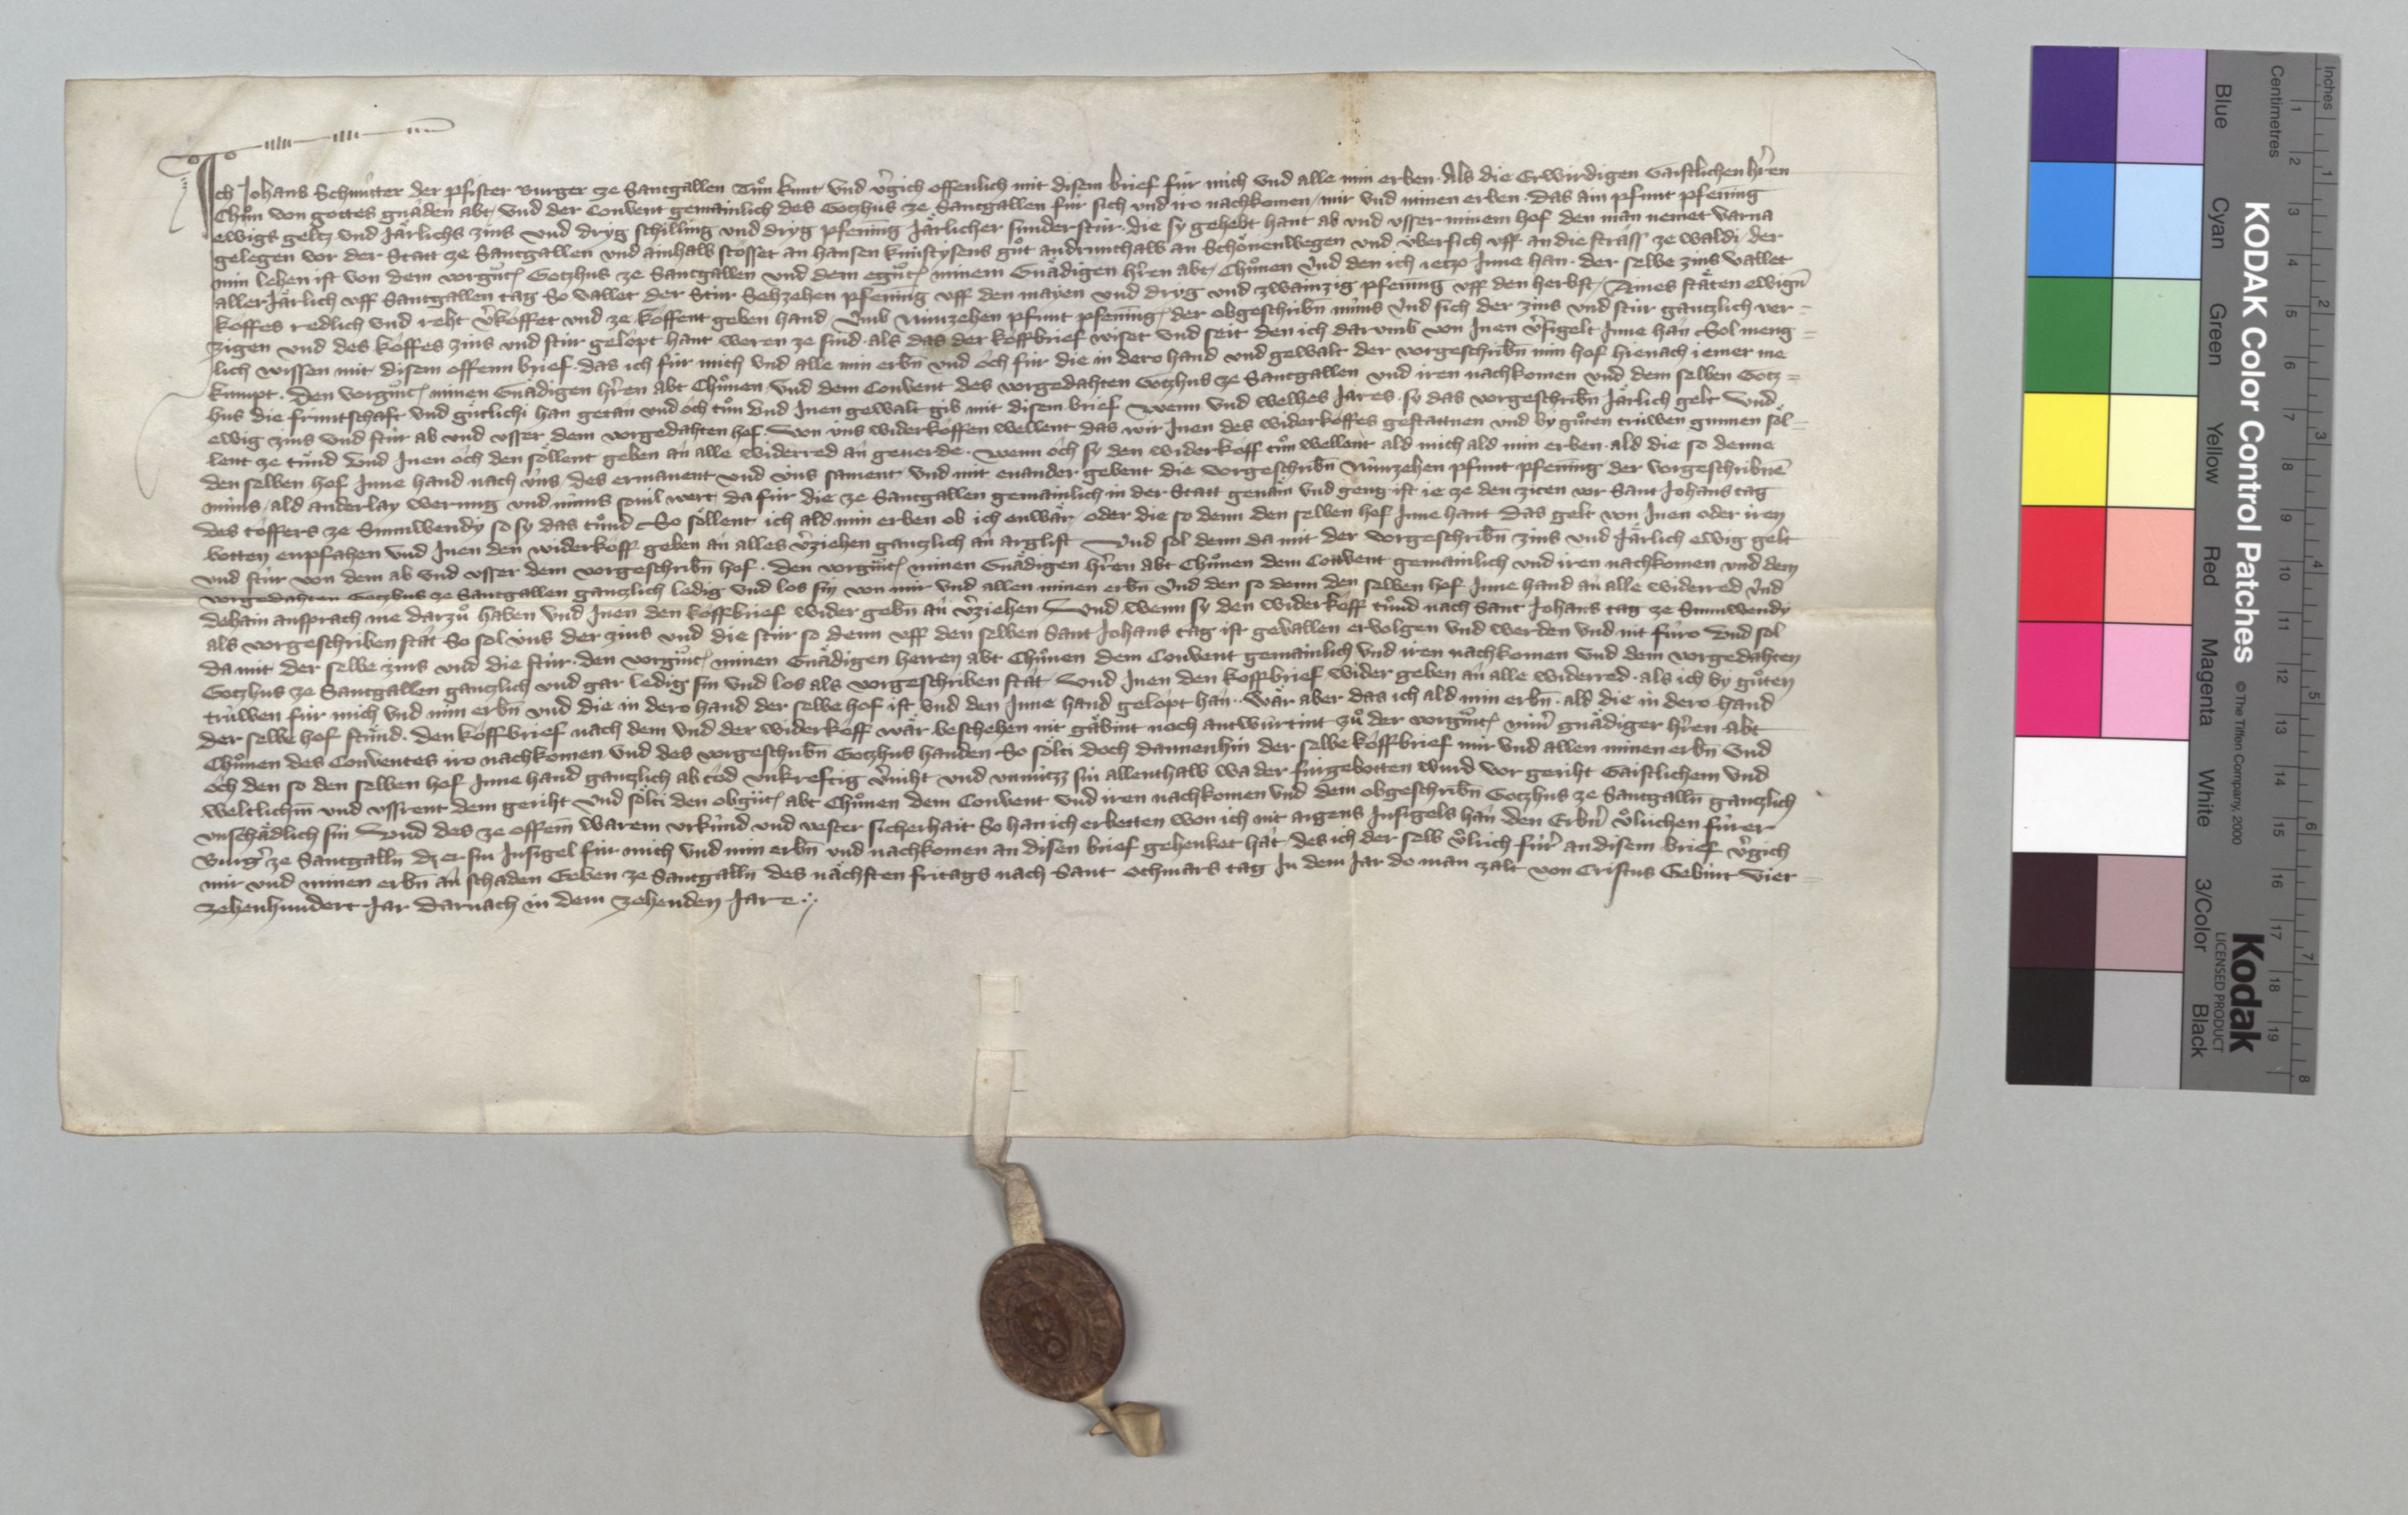 Ich Johans Schmitter der pfister Burger ze Santgallen Tůn kunt vnd v̓gich offenlich mit disem brief für mich vnd alle min erben. Als die Erwirdigen Gaistlichen hr̄en
Chůn von gottes gnaden abt, vnd der Conuent gemainlich des Gotzhus ze Santgallen für sich vnd iro nachkomen, mir vnd minen erben. Das ain pfunt pfening
ewigs geltz vnd Järlichs zins vnd dryg schilling vnd dryg pfening Järlicher sunder stür. die sy gehebt hant ab vnd vsser minem hof den man nemet Varna
gelegen vor der Statt ze Santgallen vnd ainhalb stosset an hansen gůt andrunthalb an Schönenwegen vnd vbersich vff an die strass ze waldi, der
min lehen ist von dem Gotzhus ze Santgallen vnd dem minem Gnädigen hr̄en abt, Chůnen vnd den ich ietzo Inne han. der selbe zins vallet
aller Järlich vff Santgallen tag So vallet der Stür Sehzehen pfening vff den mayen vnd dryg vnd zwainzig pfening vff den herbst, Aines stäten ewign̄
köffes redlich vnd reht v̓köffet vnd ze köffent geben hand, Vmb Nünzehen pfunt pfening, der obgeschribn̄ müns vnd sich der zins vnd stür gantzlich ver=
zigen vnd des köffes zins vnd stür gelopt hant weren ze sind. als das der köffbrief wiset vnd seit den ich darumb von Inen v̓sigelt Inne han Sol meng=
lich wissen mit disem offenn brief. das ich für mich vnd alle min erbn̄ vnd öch für die in dero hand vnd gewalt der vorgeschribn̄ min hof hienach iemer me
kumpt. Den minen Gnädigen hr̄en Abt Chůnen, vnd dem Conuent des vorgedahten Gotzhus ze Santgallen vnd iren nachkomen vnd dem selben Gotz=
hus die früntschaft vnd gütlichi han getan vnd öch tůn vnd Inen gewalt gib mit disem brief Wenn vnd welhes Jares. sy das vorgeschribn̄ Järlich gelt Vnd
ewig zins vnd stür ab vnd vsser dem vorgedahten hof. Von üns widerköffen wellent das wir Inen des widerköffes gestattnen vnd by gůten trüwen gunnen söl=
lent ze tůnd Vnd Inen öch den söllent geben an alle widerred an geuerde. Wenn öch sy den widerköff tůn wellent ald mich ald min erben. ald die so denne
den selben hof Inne hand nach üns, des ermanent vnd üns sament vnd mit enander gebent die vorgeschribn̄ Nünzehen pfunt pfening der vorgeschribnē
müns, ald anderlay werung vnd müns souil wert, da für die ze Santgallen gemainlich in der Statt genäm vnd geng ist ie ze den ziten vor Sant Johans tag
des töffers ze Sunnwendy so sy das tůnd So söllent ich ald min erben ob ich enwär, oder die so denn den selben hof Inne hant Das gelt von Inen oder iren
botten enpfahen vnd Inen den widerköff geben an alles v̓ziehen gantzlich an arglist Vnd sol denn da mit der vorgeschribn̄ zins vnd Järlich ewig gelt
vnd stür von dem ab vnd vsser dem vorgeschribn̄ hof. den minen Gnädigen hr̄en abt Chůnen dem Conuent gemainlich vnd iren nachkomen vnd dem
vorgedahten Gotzhus ze Santgallen gantzlich ledig vnd los sin von mir vnd allen minen erbn̄ vnd den so denn den selben hof Inne hand an alle widerred vnd
dehain ansprach me darzů haben vnd Inen den köffbrief wider gebn̄ an v̓ziehen Vnd wenn sy den widerköff tůnd nach Sant Johans tag ze Sunnwendy
als vorgeschriben stat So sol üns der zins vnd die stür so denn vff den selben Sant Johans tag ist geuallen ervolgen vnd werden vnd nit füro Vnd sol
da mit der selbe zins vnd die stür. den minen Gnädigen herren abt Chůnen dem Conuent gemainlich vnd iren nachkomen vnd dem vorgedahten
Gotzhus ze Santgallen gantzlich vnd gar ledig sin vnd los als vorgeschriben stat Vnd Inen den köffbrief wider geben an alle widerred. als ich by gůten
trüwen für mich vnd min erbn̄ vnd die in dero hand der selbe hof ist vnd den Inne hand gelopt han. Wär aber das ich ald min erbn̄. ald die in dero hand
der selbe hof stůnd. den köffbrief nach dem vnd der widerköff wär beschehen nit gäbint noch antwürtint zů der gnädiger hr̄en abt
Chůnen des Conuentes iro nachkomen vnd des vorgeschribn̄ Gotzhus handen So sölti doch dannenhin der selbe köffbrief mir vnd allen minen erbn̄ Vnd
öch den so den selben hof Inne hand gantzlich ab tod vnkreftig v̓niht vnd vnnütz sin allenthalb wa der fürgebotten wurd vor geriht Gaistlichem vnd
weltlichem vnd vssrent dem geriht Vnd sölti den abt Chůnen dem Conuent vnd iren nachkomen vnd dem obgeschribn̄ Gotzhus ze Santgalln̄ gantzlich
vnschädlich sin Vnd des ze offem warem vrkünd vnd vester sicherhait So han ich erbetten won ich nit aigens Insigels han den Erbn̄ Ůlrichen fürer
Burg̓ ze Santgalln̄ dz er sin Insigel für mich vnd min erbn̄ vnd nachkomen an disen brief gehenket hat, des ich der selb Ůlrich für̓ an disem brief v̓gich
mir vnd minen erbn̄ an schaden Geben ze Santgalln̄ des nächsten fritags nach Sant Othmars tag In dem Jar do man zalt von Cristus Gebürt Vier=
zehenhundert Jar Darnach in dem zehenden Jare
KODAK Color Control Patches
© The Tiffen Company, 2000
Kodak
LICENSED PRODUCT
Inches
1 2 3 4 5 6 7 8
Centimetres
1 2 3 4 5 6 7 8 9 10 11 12 13 14 15 16 17 18 19
Blue Cyan Green Yellow Red Magenta White 3/Color Black